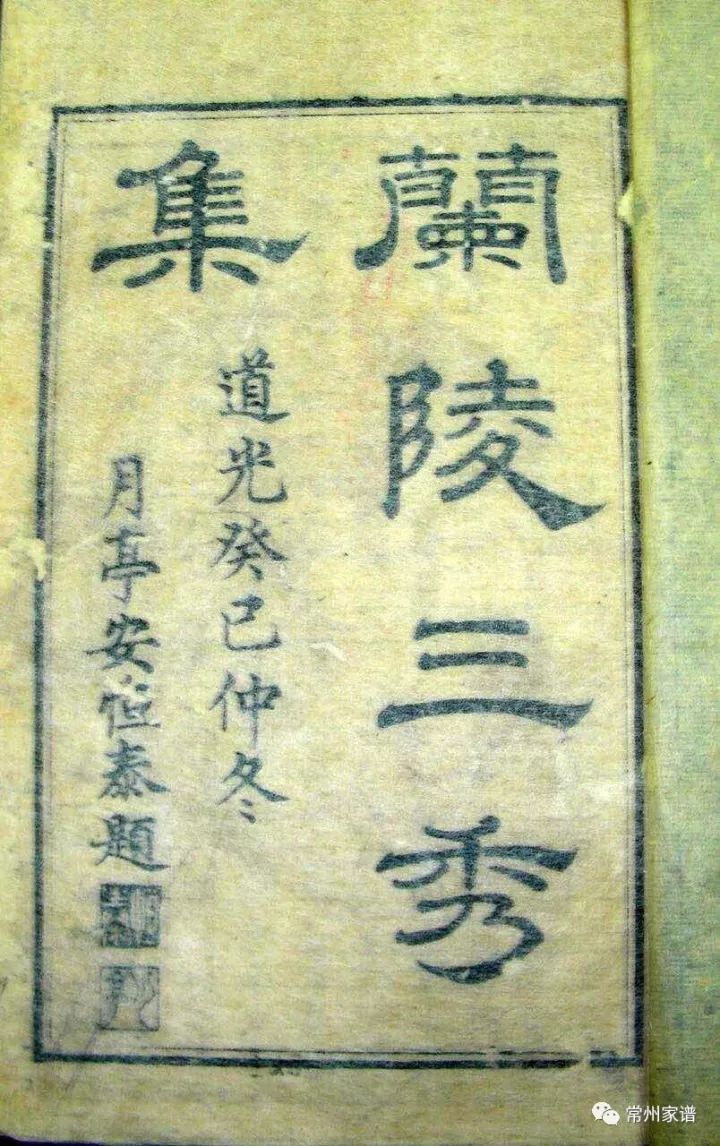 蘭陵三秀
集
道光癸巳仲冬
月亭安恒泰題
常州家谱